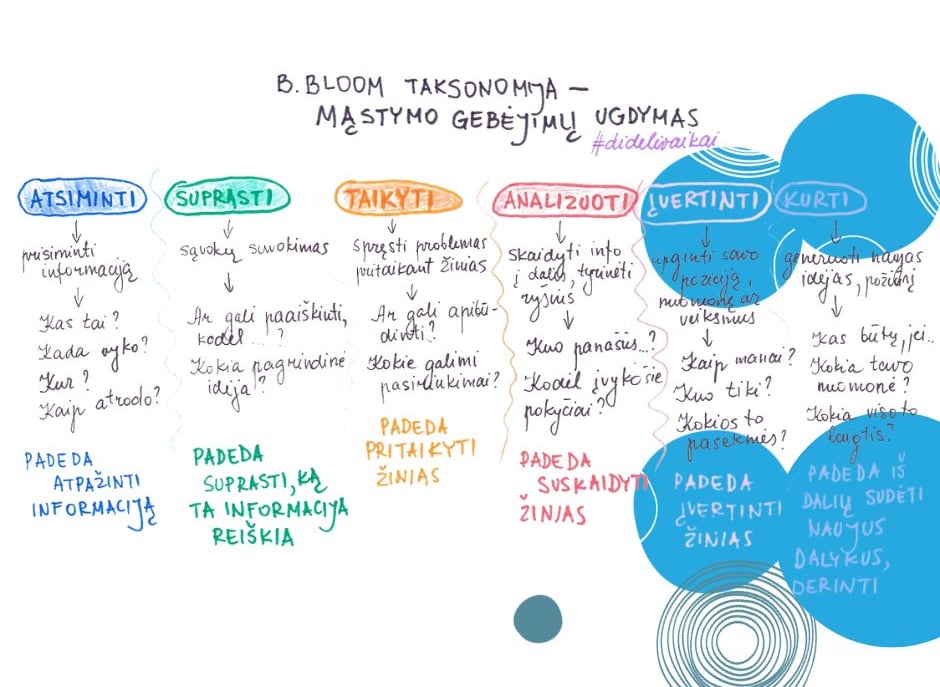 B. BLOOM TAKSONOMIJA –
MĄSTYMO GEBĖJIMŲ UGDYMAS
#didelivaikai
ATSIMINTI
prisiminti
informaciją
Kas tai?
Kada vyko?
Kur?
Kaip atrodo?
PADEDA
ATPAŽINTI
INFORMACIJĄ
SUPRASTI
sąvokų suvokimas
Ar gali paaiškinti,
kodėl...?
Kokia pagrindinė
idėja?
PADEDA
SUPRASTI, KĄ
TA INFORMACIJA
REIŠKIA
TAIKYTI
spręsti problemas
pritaikant žinias
Ar gali apibū-
dinti?
Kokie galimi
pasirinkimai?
PADEDA
PRITAIKYTI
ŽINIAS
ANALIZUOTI
skaidyti info
į dalis, tyrinėti
ryšius
Kuo panašūs...?
Kodėl įvyko šie
pokyčiai?
PADEDA
SUSKAIDYTI
ŽINIAS
ĮVERTINTI
apginti savo
poziciją,
nuomonę ar
veiksmus
Kaip manai?
Kuo tiki?
Kokios to
pasekmės?
PADEDA
ĮVERTINTI
ŽINIAS
KURTI
generuoti naujas
idėjas, požiūrį
Kas būtų, jei...
Kokia tavo
nuomonė?
Kokia viso to
baigtis?
PADEDA IŠ
DALIŲ SUDĖTI
NAUJUS
DALYKUS,
DERINTI